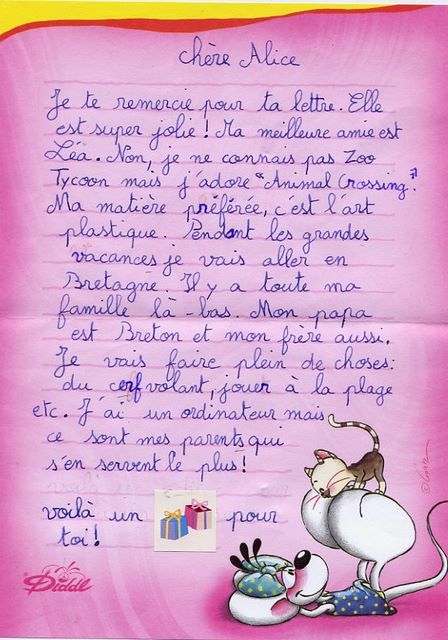 chère Alice
Je te remercie pour ta lettre. Elle
est super jolie ! Ma meilleure amie est
Léa. Non, je ne connais pas Zoo
Tycoon mais j'adore "Animal Crossing".
Ma matière préférée, c'est l'art
plastique. Pendant les grandes
vacances je vais aller en
Bretagne. Il y a toute ma
famille là-bas. Mon papa
est Breton et mon frère aussi.
Je vais faire plein de choses:
du cerf volant, jouer à la plage
etc. J'ai un ordinateur mais
ce sont mes parents qui
s'en servent le plus !
voilà un pour
toi !
Diddl